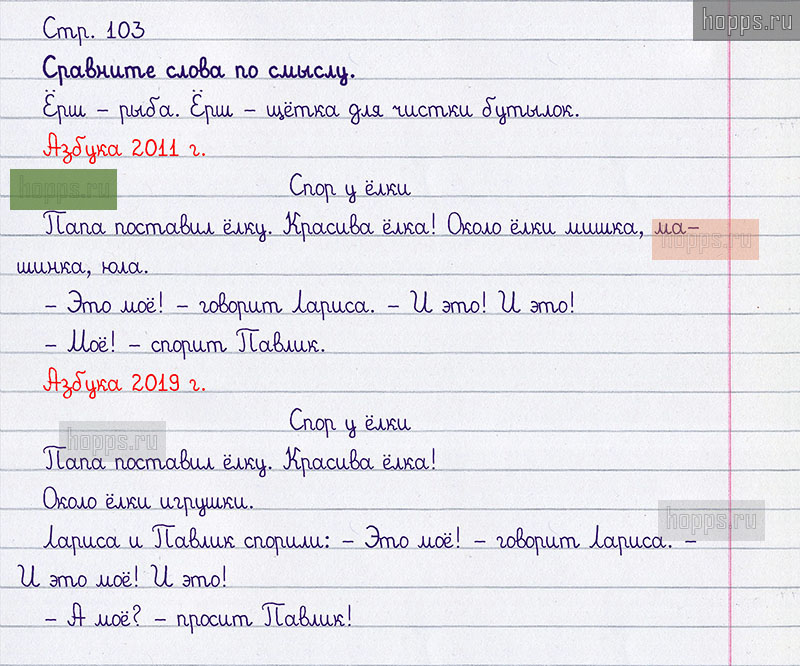 hopps.ru
Стр. 103
Сравните слова по смыслу.
Ёрш – рыба. Ёрш – щётка для чистки бутылок.
Азбука 2011 г.
hopps.ru
Спор у ёлки
Папа поставил ёлку. Красива ёлка! Около ёлки мишка, ма-
hopps.ru
шинка, юла.
– Это моё! – говорит Лариса. – И это! И это!
– Моё! – спорит Павлик.
Азбука 2019 г.
Спор у ёлки
hopps.ru
Папа поставил ёлку. Красива ёлка!
Около ёлки игрушки.
hopps.ru
Лариса и Павлик спорили: – Это моё! – говорит Лариса. –
И это моё! И это!
– А моё? – просит Павлик!